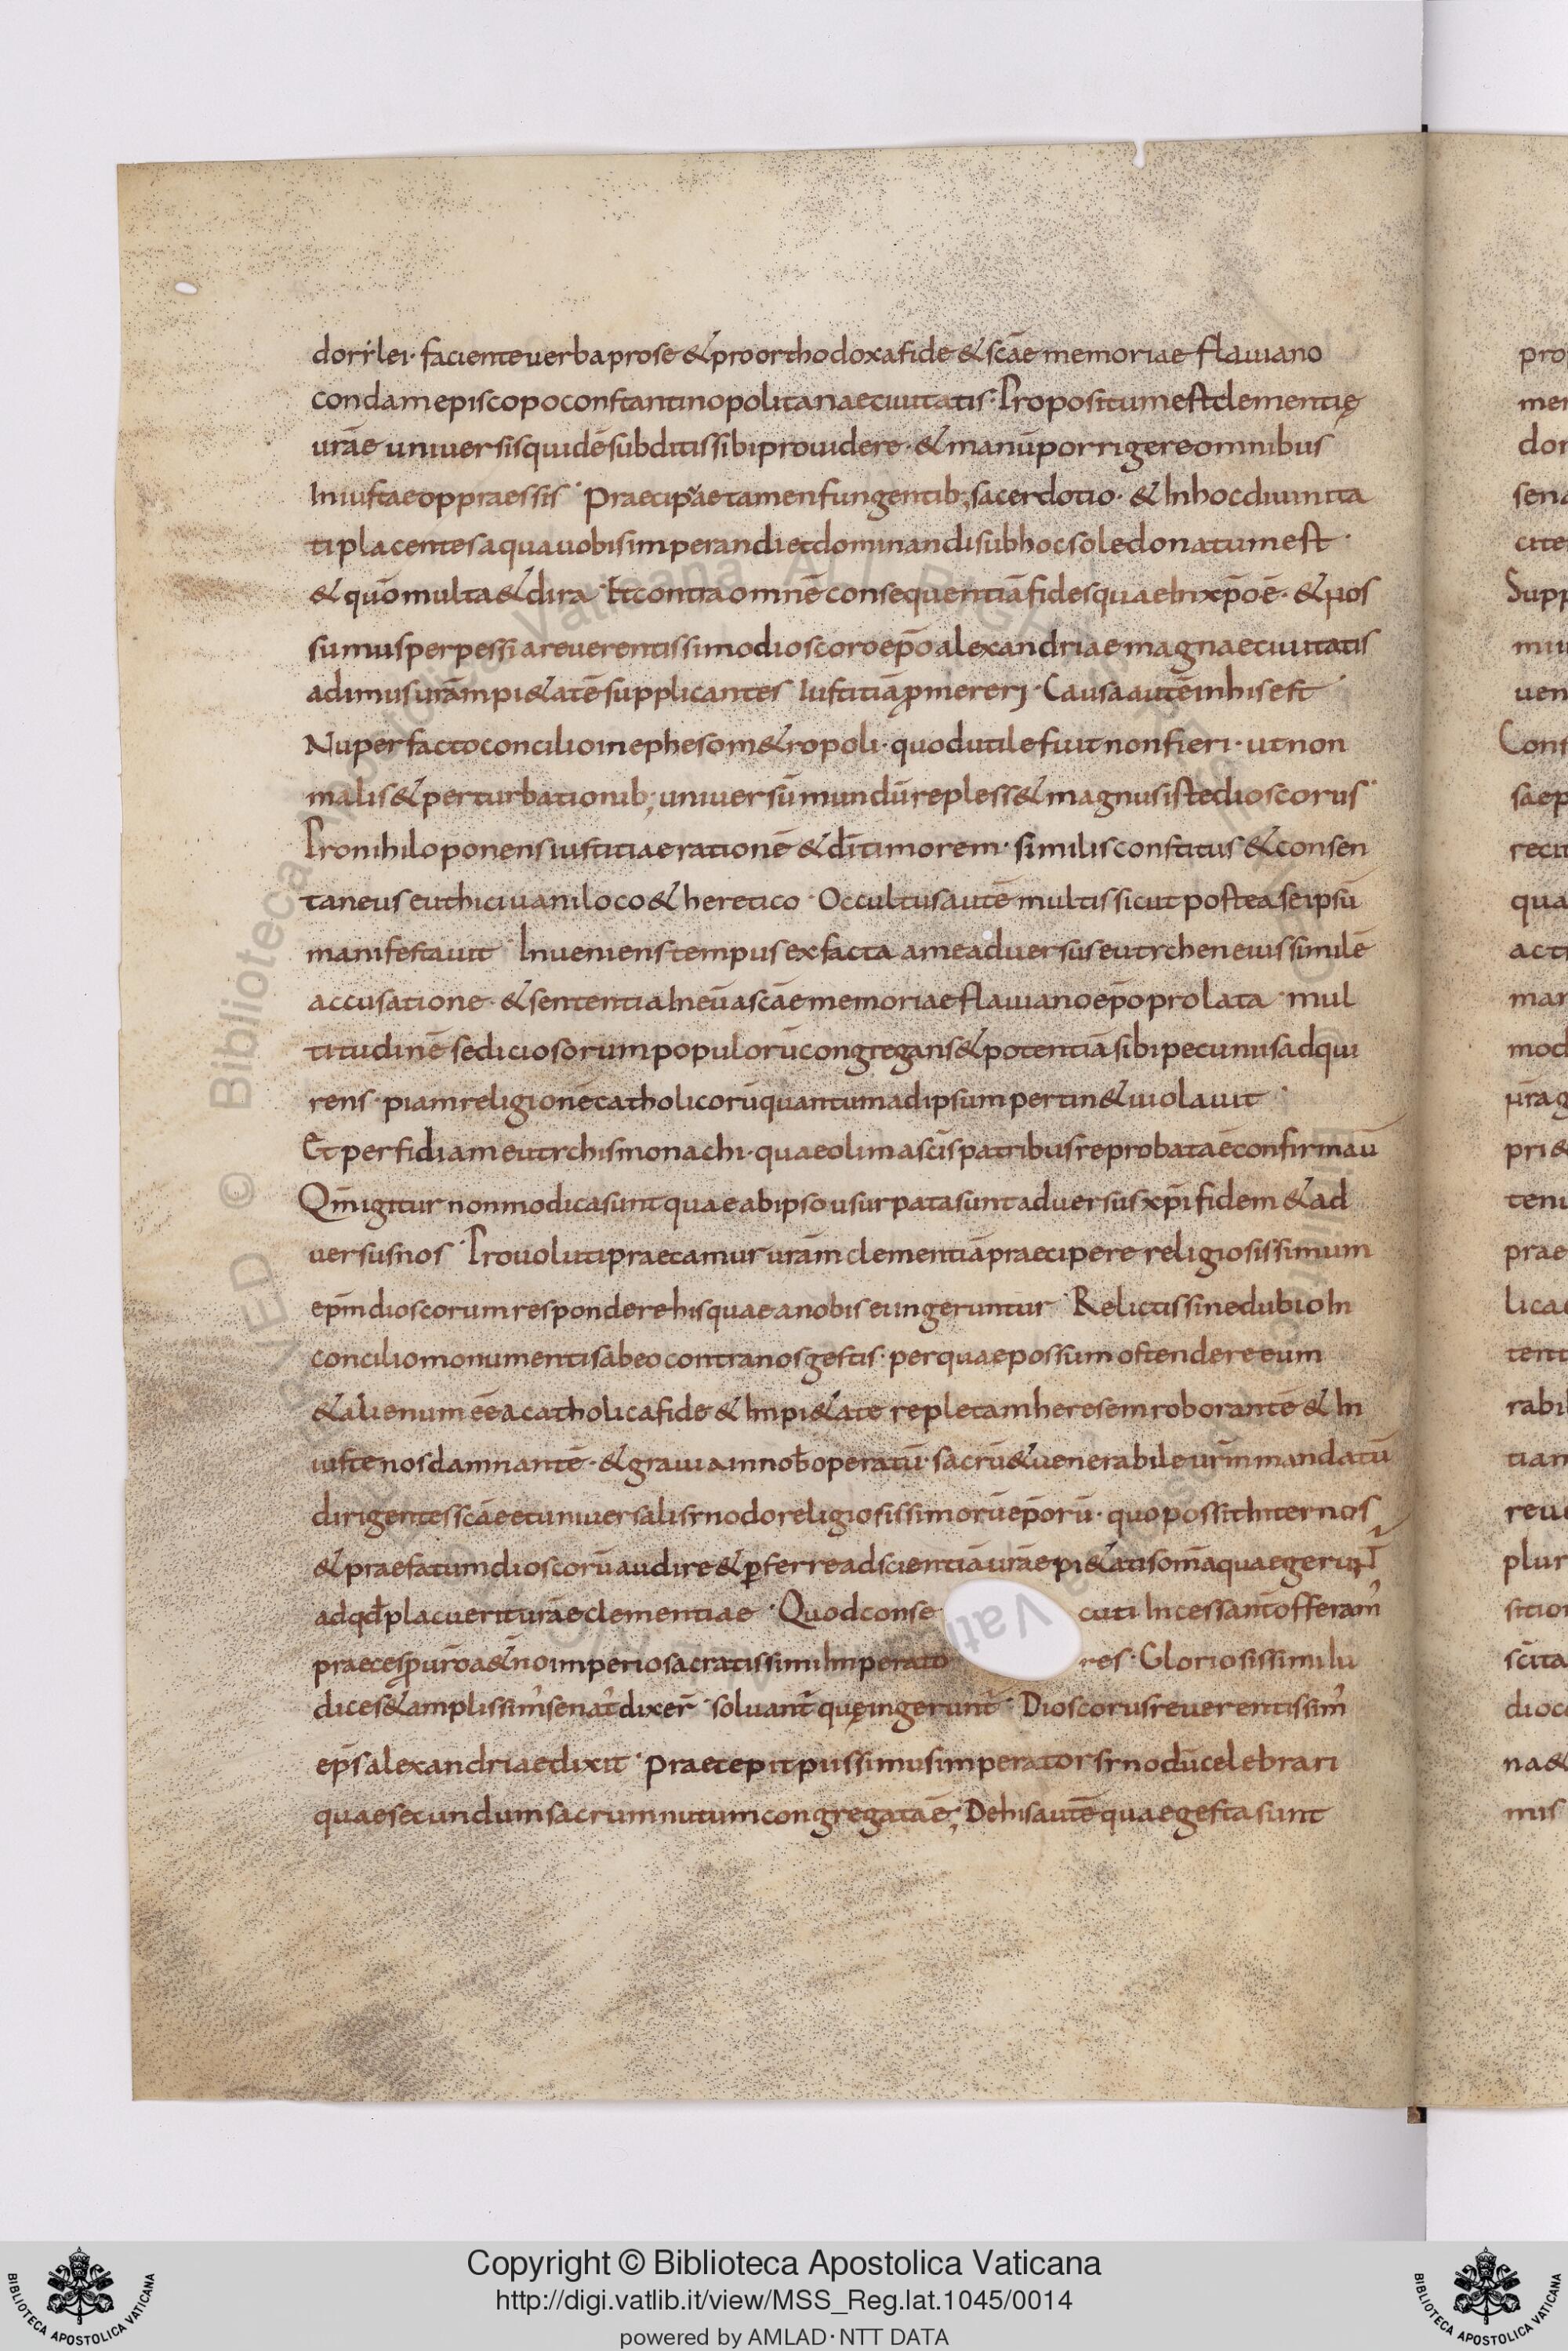 dorilei· faciente uerba pro se & pro orthodoxa fide & scāe memoriae flauiano
condam episcopo constantinopolitanae ciuitatis· Propositum est clementię
urāe uniuersis quidē subditis sibi prouidere· & manū porrigere omnibus
Iniustae oppraessis· Praecipuae tamen fungentib; sacerdotio· & In hoc diuinita
ti placentes a qua uobis imperandi et dominandi sub hoc sole donatum est·
& quō multa & dira· Et contra omnē consequentiā fides quae In xp̄o ē· & nos
sumus perpessi a reuerentissimo dioscoro ep̄o alexandriae magnae ciuitatis
adimus urām pi&atē supplicantes Iustitiā ꝓmereri· Causa autē in his est·
Nuper facto concilio in epheso m&ropoli· quod utile fuit non fieri· ut non
malis & perturbationib; uniuersū mundū repless& magnus iste dioscorus·
Pro nihilo ponens iustitiae rationē & dī timorem· similis constitus & consen
taneus euthici uaniloco & heretico· Occultus autē multis sicut postea se ipsū
manifestauit· Inueniens tempus ex facta a me aduersus eutychen eius similē
accusatione· & sententia In eū a scāe memoriae flauiano ep̄o prolata· mul
titudinē sediciosorum populorū congregans & potentiā sibi pecuniis adqui
rens· piam religionē catholicorū quantum ad ipsum pertin& uiolauit·
Et perfidiam eutychis monachi· quae olim a scīs patribus reprobata ē confirmaū
Qm̄ igitur non modica sunt quae ab ipso usurpata sunt aduersus xp̄i fidem & ad
uersus nos· Prouoluti praecamur urām clementiā praecipere religiosissimum
epm̄ dioscorum respondere his quae a nobis ei ingeruntur· Relictis sine dubio In
concilio monumentis ab eo contra nos gestis· per quae possum ostendere eum
& alienum eē a catholica fide & Impi&ate repletam heresem roborantē & In
iuste nos damnantē· & grauia in nob̄ operatū· sacrū & uenerabile urm̄ mandatū
dirigentes scāe et uniuersali synodo religiosissimorū ep̄orū· quo possit Inter nos
& praefatum dioscorū audire & ꝑferre ad scientiā urāe pi&atis omā quae gerunt̄
ad qd̄ placuerit urāe clementiae· Quod conse cuti Incessant offeram᾽
praeces ꝓ uro a&no imperio sacratissimi Imperato res· Gloriosissimi Iu
dices & amplissim᾽ senat᾽ dixer̄· soluant᾽ quę ingerunt᾽· Dioscorus reuerentissim᾽
ep̄s alexandriae dixit· Praecepit piissimus imperator synodū celebrari
quae secundum sacrum nutum congregata ē; De his autē quae gesta sunt
Copyright © Biblioteca Apostolica Vaticana
http://digi.vatlib.it/view/MSS_Reg.lat.1045/0014
powered by AMLAD·NTT DATA
BIBLIOTECA APOSTOLICA VATICANA
BIBLIOTECA APOSTOLICA VATICANA